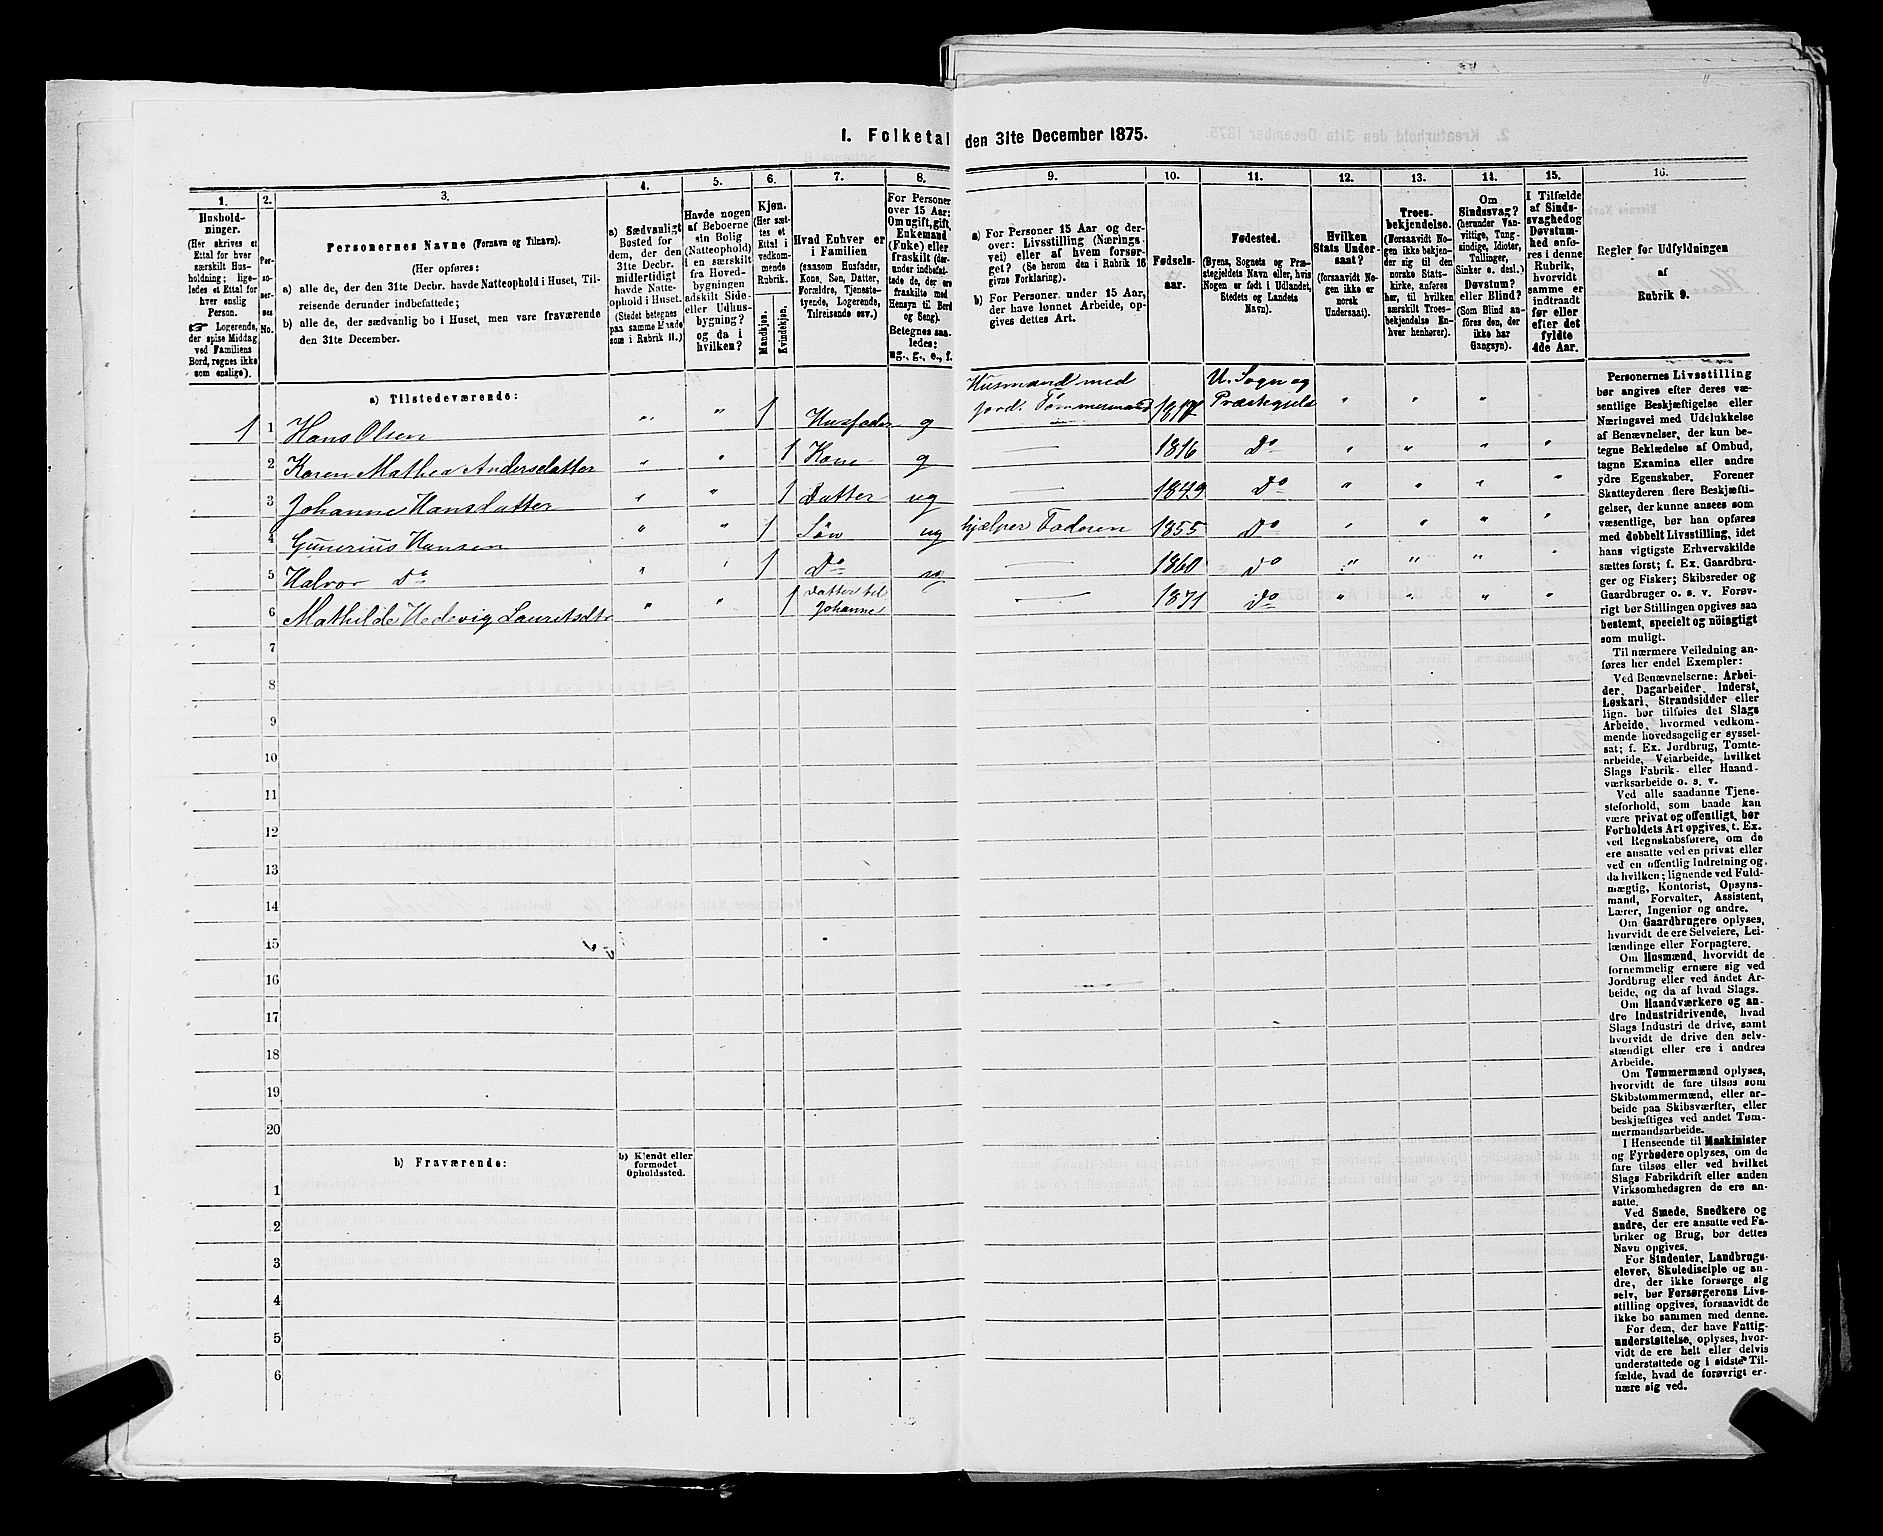 I. Folketal den 31te December 1875.
1. 2. 3. 4. 5. 6. 7. 8. 9. 10. 11. 12. 13. 14. 15. 16.
Hushold-
ninger.
(Her skrives et
Ettal for hver
særskilt Hus-
holdning; lige-
ledes et Ettal for
hver enslig
Person.
☞ Logerende,
der spise Middag
ved Familiens
Bord, regnes ikke
som enslige).
Per-
so-
ner-
nes
No.
Personernes Navne (Fornavn og Tilnavn).
(Her opføres:
a) alle de, der den 31te Decbr. havde Natteophold i Huset, Til-
reisende derunder indbefattede;
b) alle de, der sædvanlig bo i Huset, men vare fraværende
den 31te December.
a) Sædvanligt
Bosted for
dem, der den
31te Decbr.
midlertidigt
havde Natte-
ophold i Huset.
(Stedet betegnes
paa samme Maade
som i Rubrik 11.)
Havde nogen
af Beboerne
sin Bolig
(Natteophold)
i en særskilt
fra Hoved-
bygningen
adskilt Side-
eller Udhus-
bygning?
og da i
hvilken?
Kjøn.
(Her sæt-
tes et
Ettal i
vedkom-
mende
Rubrik.
Mandkjøn.
Kvindekjøn.
Hvad Enhver er
i Familien
(saasom Husfader,
Kone, Søn, Datter,
Forældre, Tjeneste-
tyende, Logerende,
Tilreisende osv.)
For Personer
over 15 Aar:
Om ugift, gift,
Enkemand
(Enke) eller
fraskilt (der-
under indbefat-
tede de, der ere
fraskilte med
Hensyn til Bord
og Seng).
Betegnes saa-
ledes:
ug., g., e., f.
a) For Personer 15 Aar og der-
over: Livsstilling (Nærings-
vei) eller af hvem forsør-
get? (Se herom den i Rubrik 16
givne Forklaring).
b) For Personer under 15 Aar,
der have lønnet Arbeide, op-
gives dettes Art.
Fødsels-
aar.
Fødested.
(Byens, Sognets og Præ-
stegjeldets Navn eller, hvis
Nogen er født i Udlandet,
Stedets og Landets
Navn).
Hvilken
Stats Under-
saat?
(forsaavidt No-
gen ikke er
norsk
Undersaat).
Troes-
bekjendelse.
(Forsaavidt No-
gen ikke bekjen-
der sig til den
norske Stats-
kirke, anføres
her, til hvilken
særskilt Troes-
bekjendelse En-
hver henhører).
Om
Sindssvag?
(herunder Van-
vittige, Tung-
sindige, Idioter,
Tullinger,
Sinker o. desl.)
Døvstum?
eller Blind?
(Som Blind an-
føres den, der
ikke har
Gangsyn).
I Tilfælde
af Sinds-
svaghed og
Døvstum-
hed anfø-
res i denne
Rubrik,
hvorvidt
samme er
indtraadt
før eller
efter det
fyldte
4de Aar.
Regler for Udfyldningen
af
Rubrik 9.
a) Tilstedeværende:
1 1 Hans Olsen " " 1 Husfader g Husmand med jord. Tømmermand 1817 U. Sogn og Præstegjeld " " "
2 Karen Mathea Andersdatter " " 1 Kone g — 1816 Do " " " "
3 Johanne Hansdatter " " 1 Datter ug — 1849 Do " " " "
4 Gunerius Hansen " " 1 Søn ug hjælper Faderen 1855 Do " " " "
5 Halvor Do " " 1 Do ug — 1860 Do " " " "
6 Mathilde Hedevig Lauritsdtr " " 1 Datter til Johanne — 1871 Do " " " "
7
8
9
10
11
12
13
14
15
16
17
18
19
20
b) Fraværende:
b) Kjendt eller
formodet
Opholdssted.
1
2
3
4
5
6
Personernes Livsstilling
bør angives efter deres væ-
sentlige Beskjæftigelse eller
Næringsvei med Udelukkelse
af Benævnelser, der kun be-
tegne Beklædelse af Ombud,
tagne Examina eller andre
ydre Egenskaber. Forener
Skatteyderen flere Beskjæfti-
gelser, der kunne ansees som
væsentlige, bør han opføres
med dobbelt Livsstilling, idet
hans vigtigste Erhvervskilde
sættes først; f. Ex. Gaardbru-
ger og Fisker; Skibsreder og
Gaardbruger o. s. v. Forøv-
rigt bør Stillingen opgives saa
bestemt, specielt og nøiagtigt
som muligt.
Til nærmere Veiledning an-
føres her endel Exempler:
Ved Benævnelserne: Arbei-
der, Dagarbeider, Inderst,
Løskarl, Strandsidder eller
lign. bør tilføies det Slags
Arbeide, hvormed vedkom-
mende hovedsagelig er syssel-
sat; f. Ex. Jordbrug, Tomte-
arbeide, Veiarbeide, hvilket
Slags Fabrik- eller Haand-
værksarbeide o. s. v.
Ved alle saadanne Tjene-
steforhold, som baade kan
være privat og offentligt, bør
Forholdets Art opgives, t. Ex.
ved Regnskabsførere, om de
ere ansatte ved en privat eller
ved en offentlig Indretning og
da hvilken; lignende ved Fuld-
mægtig, Kontorist, Opsyns-
mand, Forvalter, Assistent,
Lærer, Ingeniør og andre.
Om Gaardbrugere oplyses,
hvorvidt de ere Selveiere, Lei-
lændinge eller Forpagtere.
Om Husmænd, hvorvidt de
fornemmelig ernære sig ved
Jordbrug eller ved andet Ar-
beide, og da af hvad Slags.
Om Haandværkere og an-
dre Industridrivende, hvad
Slags Industri de drive, samt
hvorvidt de drive den selv-
stændigt eller ere i andres
Arbeide.
Om Tømmermænd oplyses,
hvorvidt de fare tilsøs som
Skibstømmermænd, eller ar-
beide paa Skibsværfter, eller
beskjæftiges ved andet Tøm-
mermandsarbeide.
I Henseende til Maskinister
og Fyrbødere oplyses, om de
fare tilsøs eller ved hvilket
Slags Fabrikdrift eller anden
Virksomhedsgren de ere an-
satte.
Ved Smede, Snedkere og
andre, der ere ansatte ved Fa-
briker og Brug, bør dettes
Navn opgives.
For Studenter, Landbrugs-
elever, Skoledisciple og an-
dre, der ikke forsørge sig
selv, bør Forsørgerens Livs-
stilling opgives, forsaavidt de
ikke bo sammen med denne.
For dem, der have Fattig-
understøttelse, oplyses, hvor-
vidt de ere helt eller delvis
understøttede og i sidste Til-
fælde, hvad de forøvrigt er-
nære sig ved.